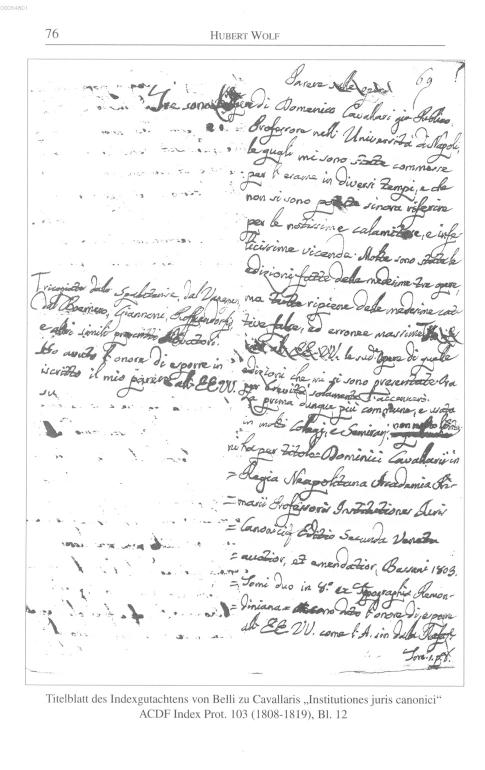 00064801
76
HUBERT WOLF
69
Tre sono le opere di Domenico Cavallari già Publico
Professore nell' Università di Napoli,
le quali mi sono state commesse
per l'esame in diversi tempi, e che
non si sono sinora riferire
per le notissime calamitose, e infe-
licissime vicende. Molte sono state le
edizioni fatte delle medesime tre opere,
ma tutte ripiene delle medesime cat-
tive false, ed erronee massime
all' EE. VV. le sud. Opere di quale
edizioni che mi si sono presentate
per brevità solamente l'accennerò.
La prima dunque più commune, e usata
in molti Collegj, e Seminarj,
ha per titolo = Dominici Cavallarii in
= Regia Neapolitana Academia Pri-
= marii Professoris Institutiones Juris
= Canonici Editio Secunda Veneta
= auctior, et emendatior, Bassani 1803.
= Tomi duo in 8.° ex Typographia Remon-
= diniana = l'onore di esporre
all' EE VV. come l'A. sin dalla
Tom. 1. p. 8.
dal Van
dal Boemero, Giannone,
e altri simili
l'onore di esporre in
iscritto il mio parere all' EE VV.
su
Titelblatt des Indexgutachtens von Belli zu Cavallaris „Institutiones juris canonici“
ACDF Index Prot. 103 (1808-1819), Bl. 12